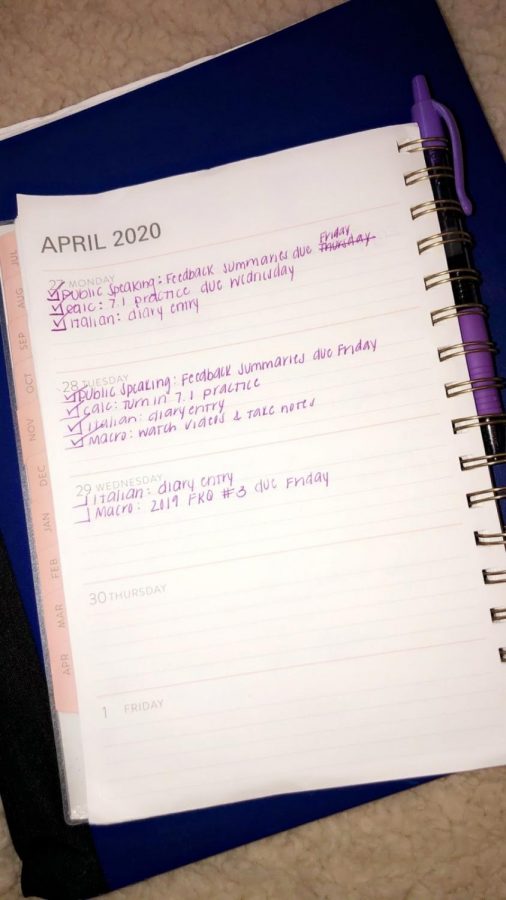 APRIL 2020
27 MONDAY
Friday
Public Speaking: Feedback summaries due Thursday
Calc: 7.1 practice due Wednesday
Italian: diary entry
28 TUESDAY
Public Speaking: Feedback summaries due Friday
Calc: turn in 7.1 practice
Italian: diary entry
Macro: watch videos & take notes
29 WEDNESDAY
Italian: diary entry
Macro: 2019 FRQ #3 due Friday
30 THURSDAY
1 FRIDAY
JUL
AUG
SEP
OCT
NOV
DEC
JAN
FEB
MAR
APR